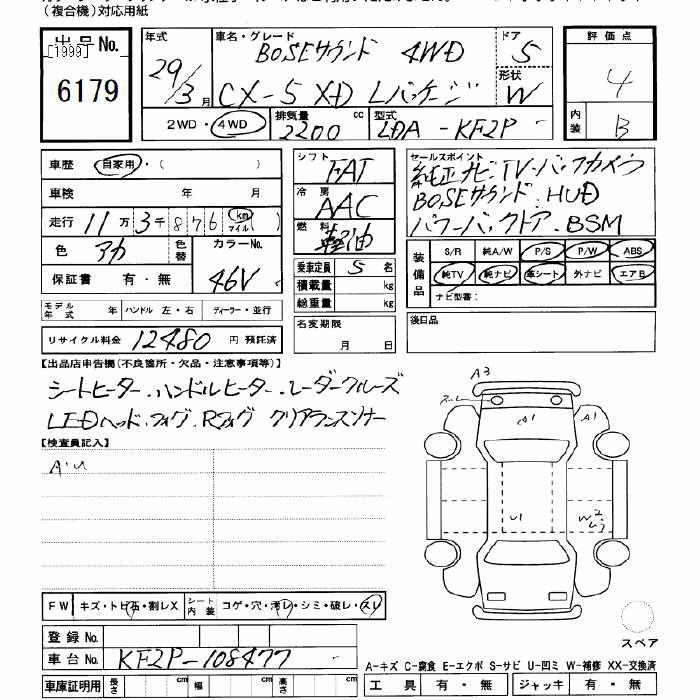 （複合機）対応用紙
出品No.
[1999]
6179
年式 29/3月
車名・グレード BOSEサウンド 4WD
CX-5 XD Lパッケージ
ドア 5
形状 W
2WD・4WD
排気量 2200 cc
型式 LDA-KF2P
評価点 4
内装 B
車歴 自家用・（ ）
車検 年 月
走行 11万3千876 km マイル（ ）
色 アカ
色替
カラーNo. 46V
保証書 有・無
モデル年式 年 ハンドル 左・右 ディーラー・並行
リサイクル料金 12480 円 預託済
シフト FAT
冷房 AAC
燃料 軽油
乗車定員 5 名
積載量 kg
総重量 kg
名変期限
月 日
セールスポイント
純正ナビ・TV・バックカメラ
BOSEサウンド・HUD
パワーバックドア・BSM
装備品
S/R 純A/W P/S P/W ABS
純TV 純ナビ 革シート 外ナビ エアB
ナビ型番：
後日品
【出品店申告欄(不良箇所・欠品・注意事項等)】
シートヒーター・ハンドルヒーター・レーダークルーズ
LEDヘッド・フォグ・Rフォグ クリアランスソナー
【検査員記入】
A・U
A3
A1
A1
U1
W2
FW キズ・トビ石・割レX
シート内装 コゲ・穴・汚レ・シミ・破レ・スレ
スペア
登録No.
車台No. KF2P-108477
A-キズ C-腐食 E-エクボ S-サビ U-凹ミ W-補修 XX-交換済
車庫証明用 長さ cm 幅 cm 高さ cm
工具 有・無 ジャッキ 有・無